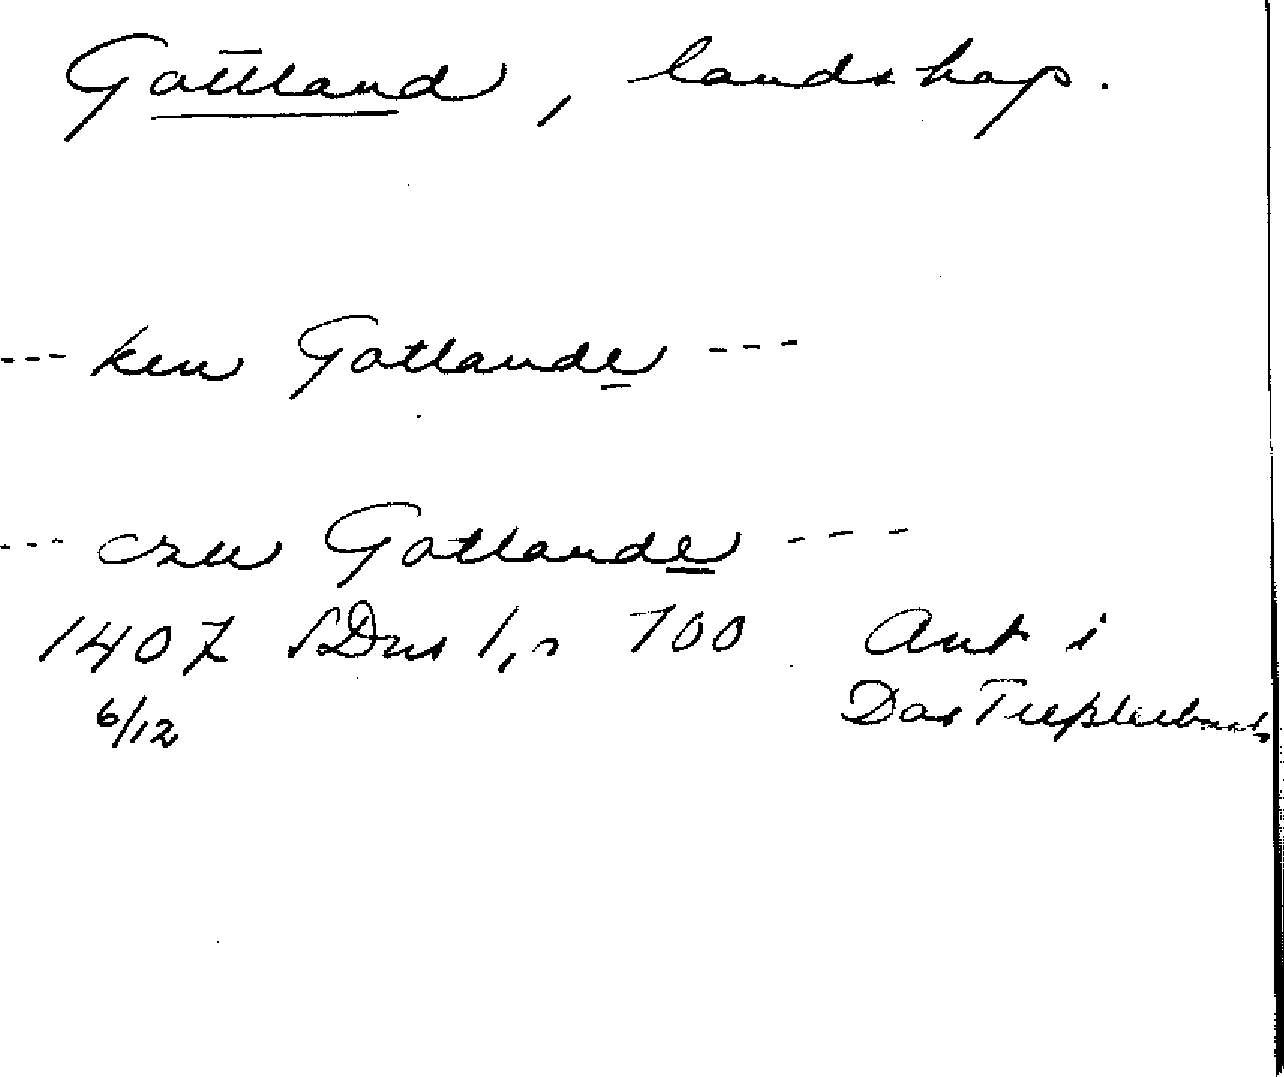 Gottland, landskap.
--- ken Gotlande ---
--- czu Gotlande ---
1407 SDns 1, s 700 Ant i
6/12 Das Treßlerbuch